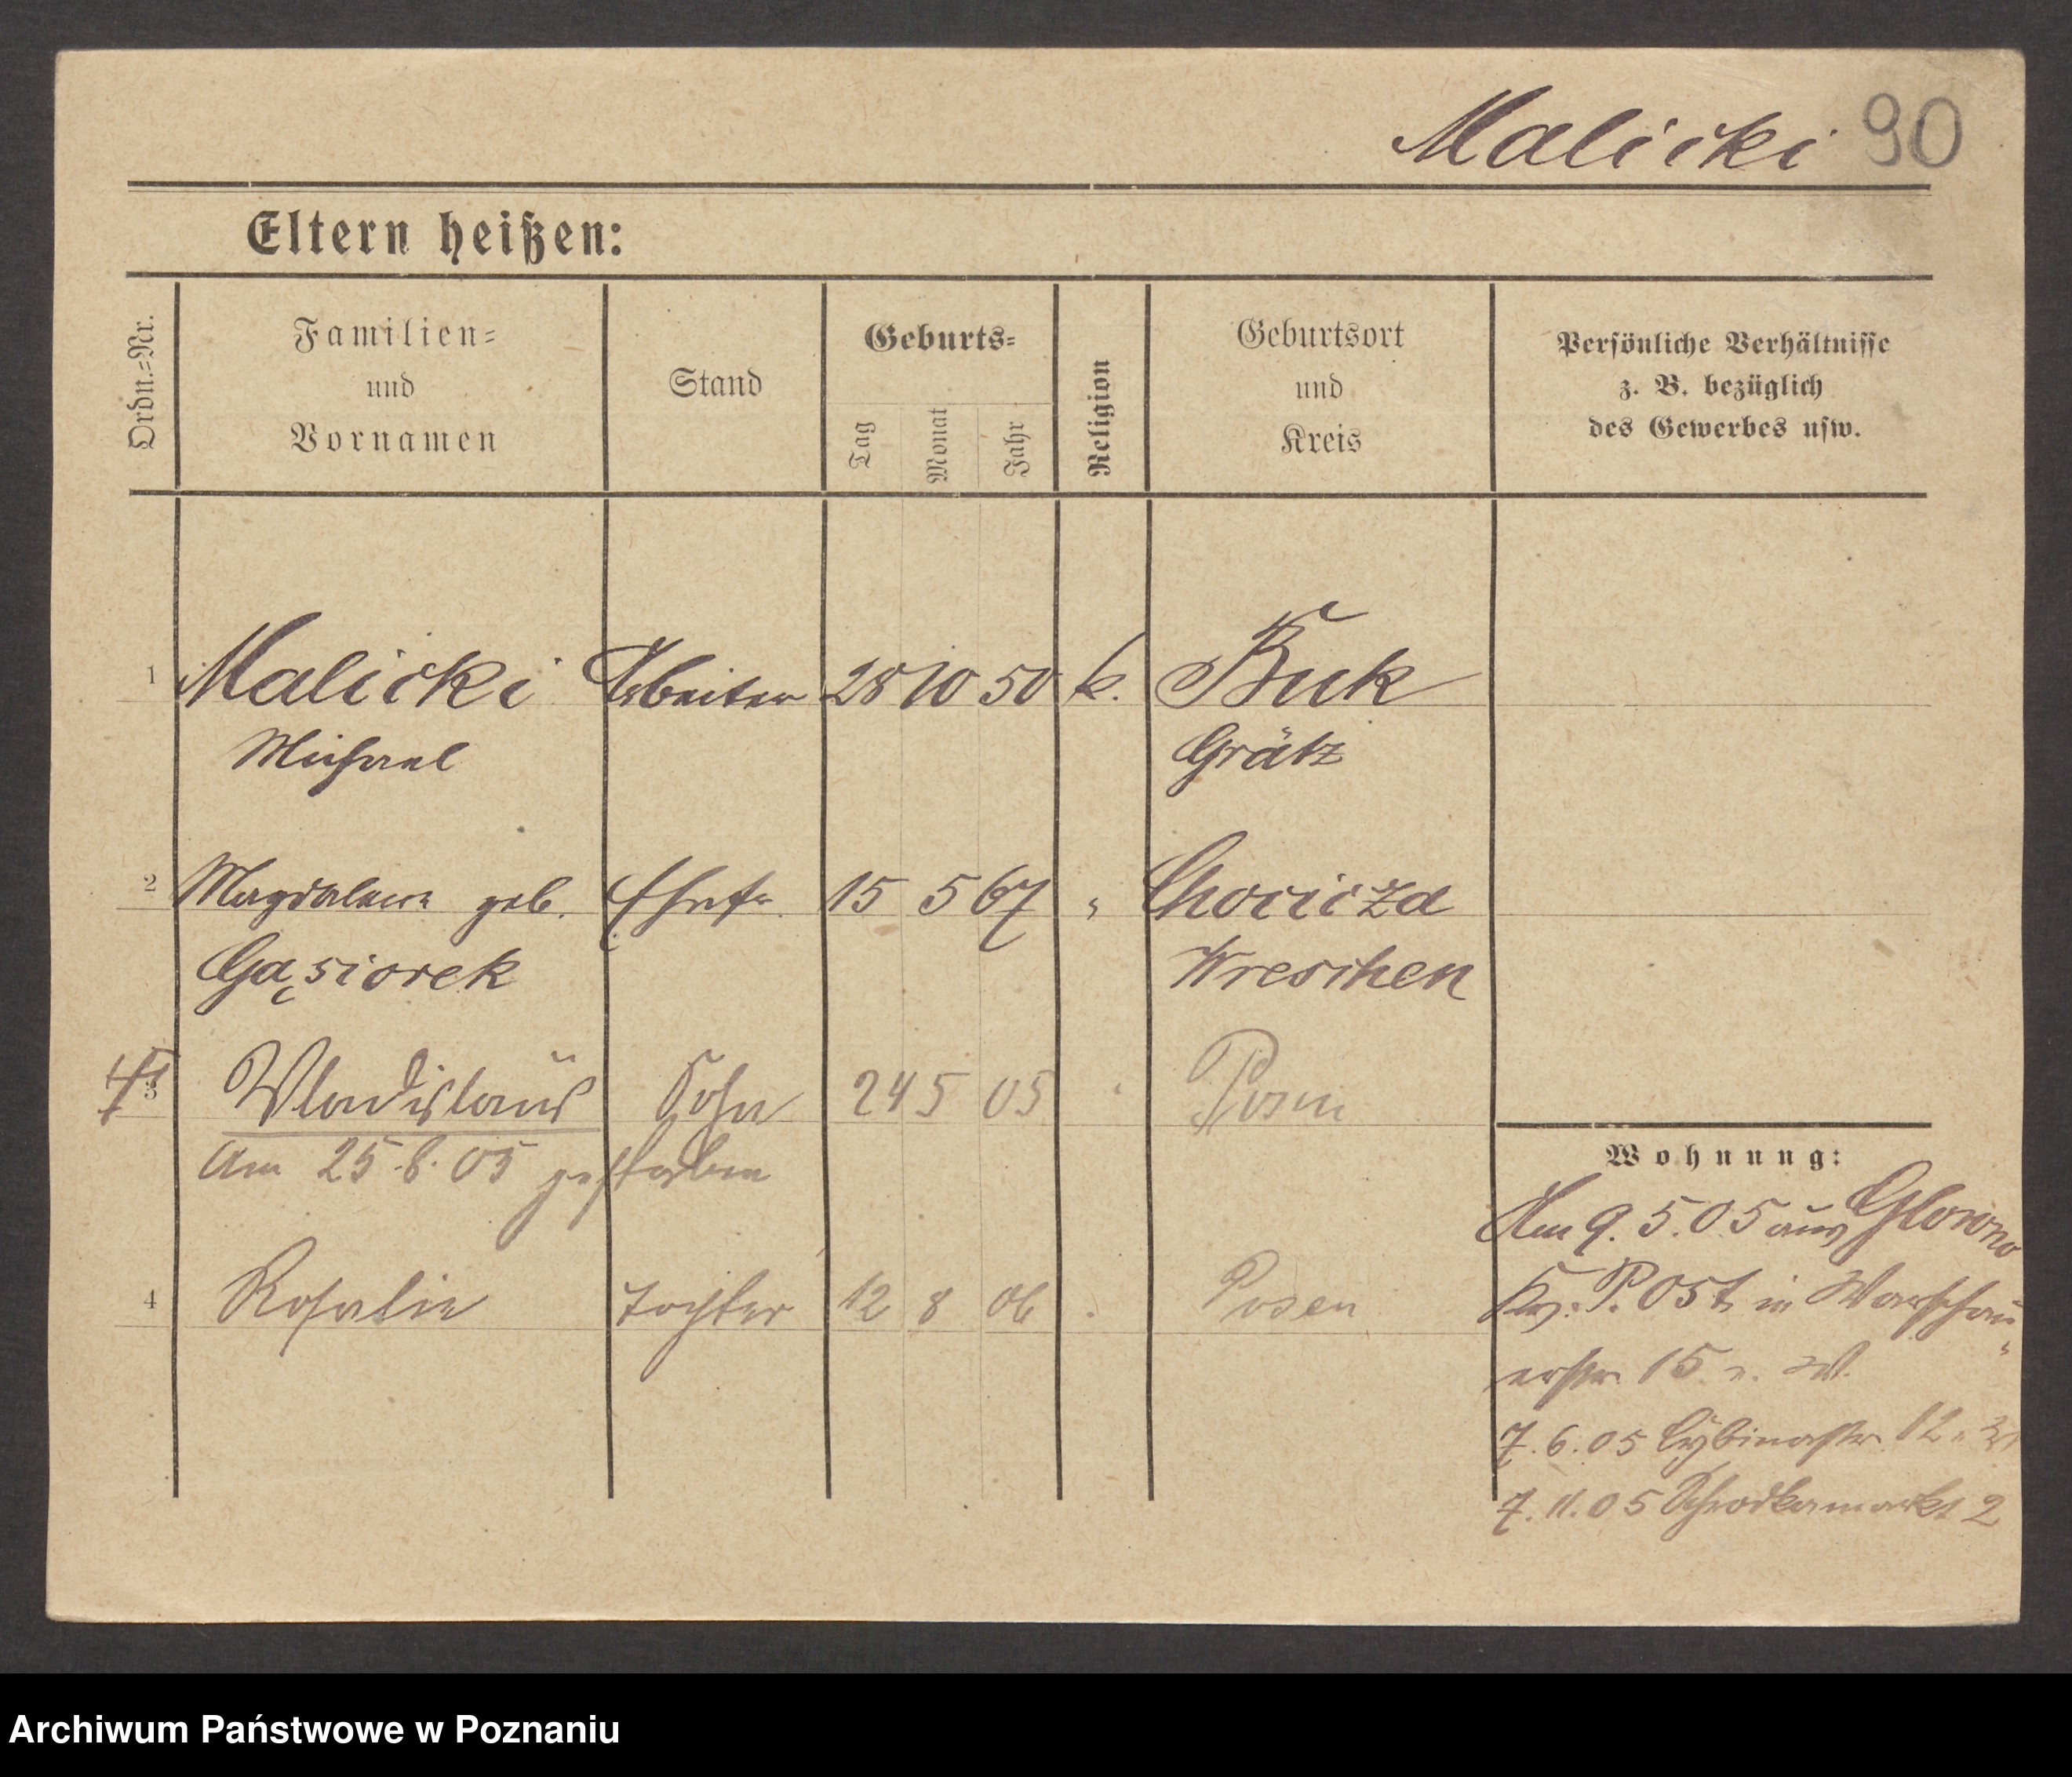 Malicki 90
Eltern heißen:
Ordn.=Nr.
Familien=
und
Vornamen
Stand
Geburts=
Tag
Monat
Jahr
Religion
Geburtsort
und
Kreis
Persönliche Verhältnisse
z. B. bezüglich
des Gewerbes usw.
1 Malicki Arbeiter 28 10 50 k. Buk
Michael Grätz
2 Magdalena geb. Ehefr. 15 5 67 " Chocicza
Gąsiorek Wreschen
3 Wladislaus Sohn 24 5 05 Posen
Am 25.8.05 gestorben
4 Rosalie Tochter 12 8 06 Posen
Wohnung:
Am 9.5.05 aus Glowno
Kr. P. Ost in Warschau
erstr. 15 W.
7.6.05 Cybinastr. 12
7.11.05 Schrodkamarkt 2
Archiwum Państwowe w Poznaniu